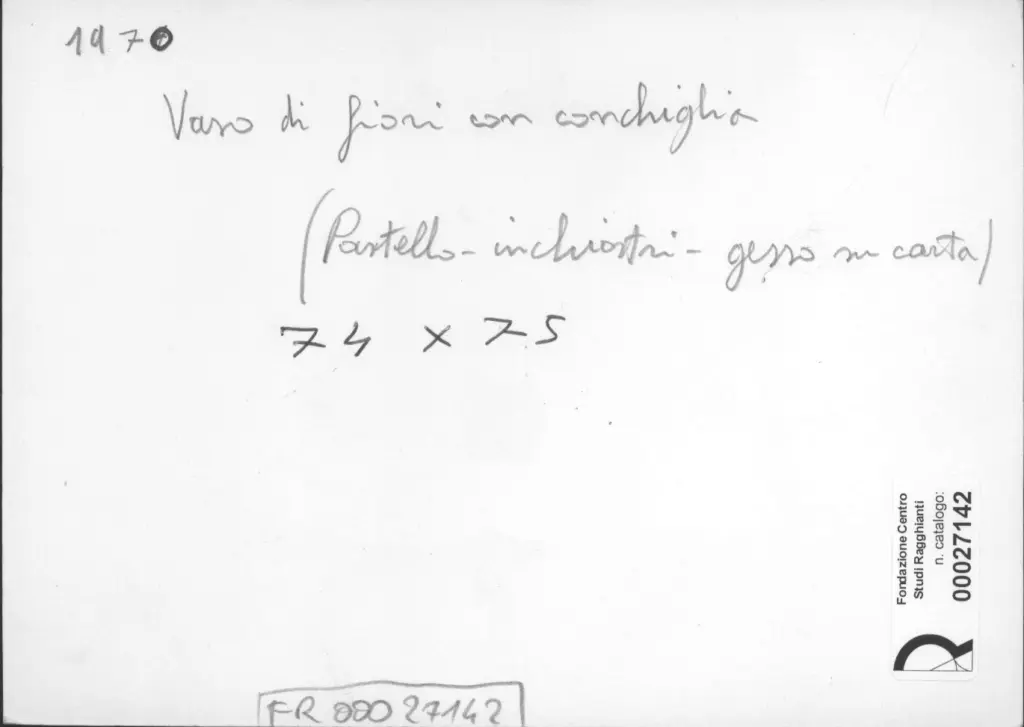 1970
Vaso di fiori con conchiglia
(Pastello - inchiostri - gesso su carta)
74 x 75
Fondazione Centro
Studi Ragghianti
n. catalogo:
00027142
FR 00027142